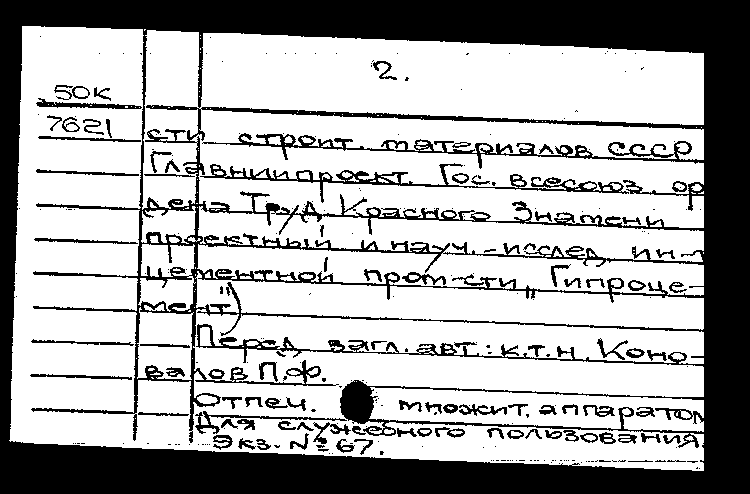 2.
50К
7621 сти строит. материалов СССР
Главниипроект. Гос. всесоюз. ор
дена Труд. Красного Знамени
проектный и науч.-исслед. ин-т
цементной пром-сти „Гипроце-
мент")
Перед загл. авт.: к.т.н. Коно-
валов П.Ф.
Отпеч. множит. аппаратом
Для служебного пользования.
Экз. №67.